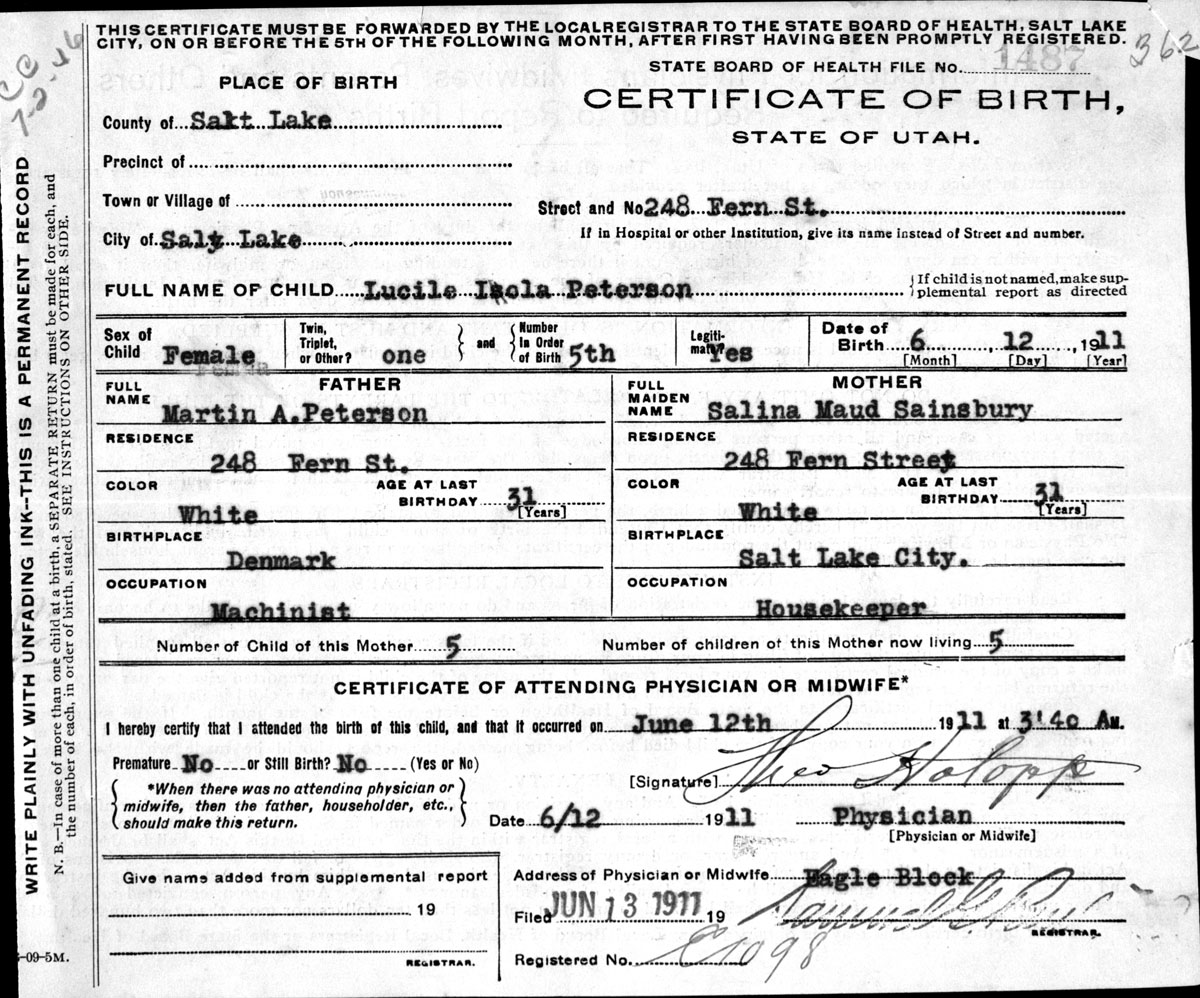 THIS CERTIFICATE MUST BE FORWARDED BY THE LOCAL REGISTRAR TO THE STATE BOARD OF HEALTH, SALT LAKE
CITY, ON OR BEFORE THE 5TH OF THE FOLLOWING MONTH, AFTER FIRST HAVING BEEN PROMPTLY REGISTERED.
362
7-2-46
STATE BOARD OF HEALTH FILE No. 1487
PLACE OF BIRTH
CERTIFICATE OF BIRTH,
STATE OF UTAH.
County of Salt Lake
Precinct of
Town or Village of
Street and No 248 Fern St.
City of Salt Lake
If in Hospital or other Institution, give its name instead of Street and number.
FULL NAME OF CHILD Lucile Isola Peterson
{If child is not named, make sup-
plemental report as directed
Sex of Child Female
Twin, Triplet, or Other? one
{ and } Number In Order of Birth 5th
Legiti- mate? Yes
Date of Birth 6, 12, 1911
[Month] [Day] [Year]
FATHER
FULL NAME Martin A.Peterson
RESIDENCE
248 Fern St.
COLOR White
AGE AT LAST BIRTHDAY 31 [Years]
BIRTHPLACE
Denmark
OCCUPATION
Machinist
MOTHER
FULL MAIDEN NAME Salina Maud Sainsbury
RESIDENCE
248 Fern Street
COLOR White
AGE AT LAST BIRTHDAY 31 [Years]
BIRTHPLACE
Salt Lake City.
OCCUPATION
Housekeeper
Number of Child of this Mother 5
Number of children of this Mother now living 5
CERTIFICATE OF ATTENDING PHYSICIAN OR MIDWIFE*
I hereby certify that I attended the birth of this child, and that it occurred on June 12th 1911 at 3'40 AM.
Premature No or Still Birth? No (Yes or No)
[Signature] Theo Holopp
{ *When there was no attending physician or
midwife, then the father, householder, etc.,
should make this return. }
Date 6/12 1911
Physician
[Physician or Midwife]
Give name added from supplemental report
19
REGISTRAR.
Address of Physician or Midwife Eagle Block
Filed JUN 13 1911 19
REGISTRAR.
Registered No. E1098
-09-5M.
WRITE PLAINLY WITH UNFADING INK--THIS IS A PERMANENT RECORD
N. B.—In case of more than one child at a birth, a SEPARATE RETURN must be made for each, and
the number of each, in order of birth, stated. SEE INSTRUCTIONS ON OTHER SIDE.